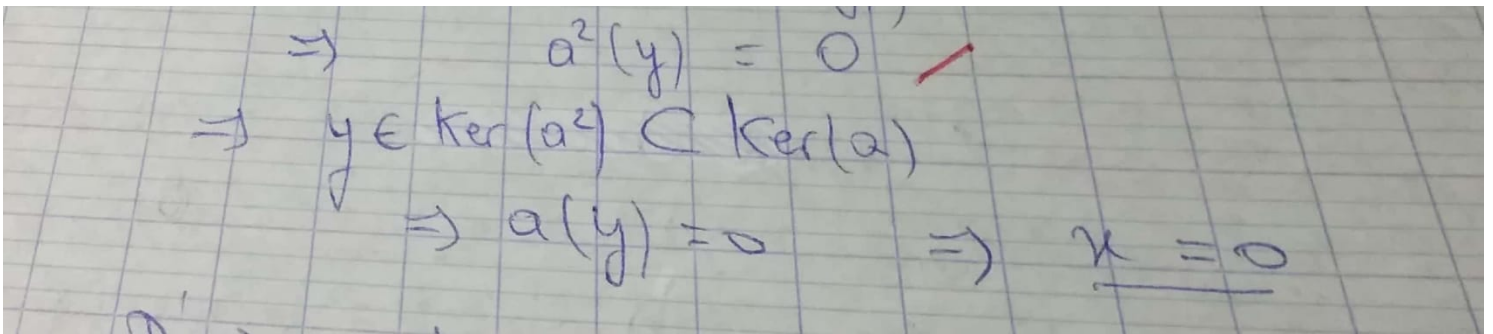 ⇒ a²(y) = 0
⇒ y ∈ Ker(a²) ⊂ Ker(a)
⇒ a(y) = 0 ⇒ x = 0